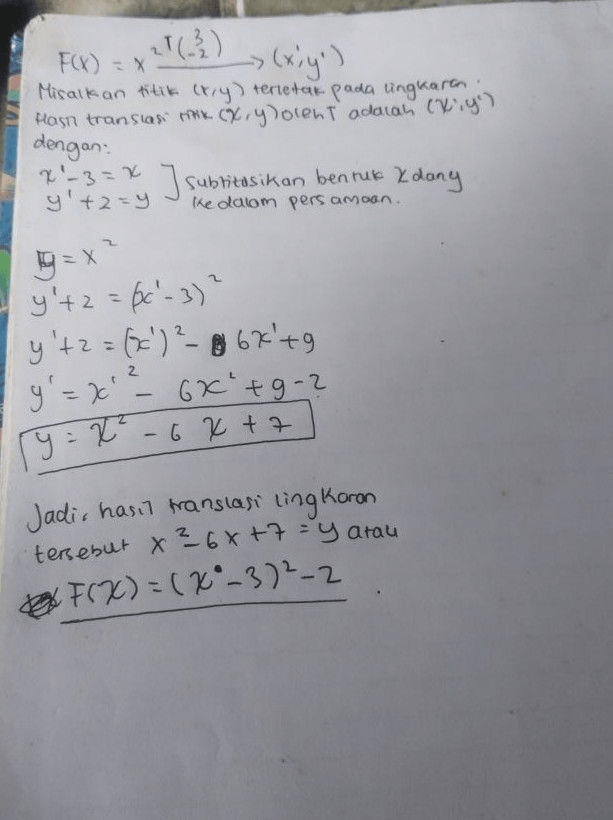 F(x) = x² T(3 -2) → (x', y')
Misalkan titik (x,y) terletak pada lingkaran.
Hasil translasi titik (x,y) oleh T adalah (x',y')
dengan:
x' - 3 = x ] Subtitusikan bentuk x dan y
y' + 2 = y ke dalam persamaan.
y = x²
y' + 2 = (x' - 3)²
y' + 2 = (x')² - 6x' + 9
y' = x'² - 6x' + 9 - 2
y = x² - 6x + 7
Jadi, hasil translasi lingkaran
tersebut x² - 6x + 7 = y atau
F(x) = (x - 3)² - 2